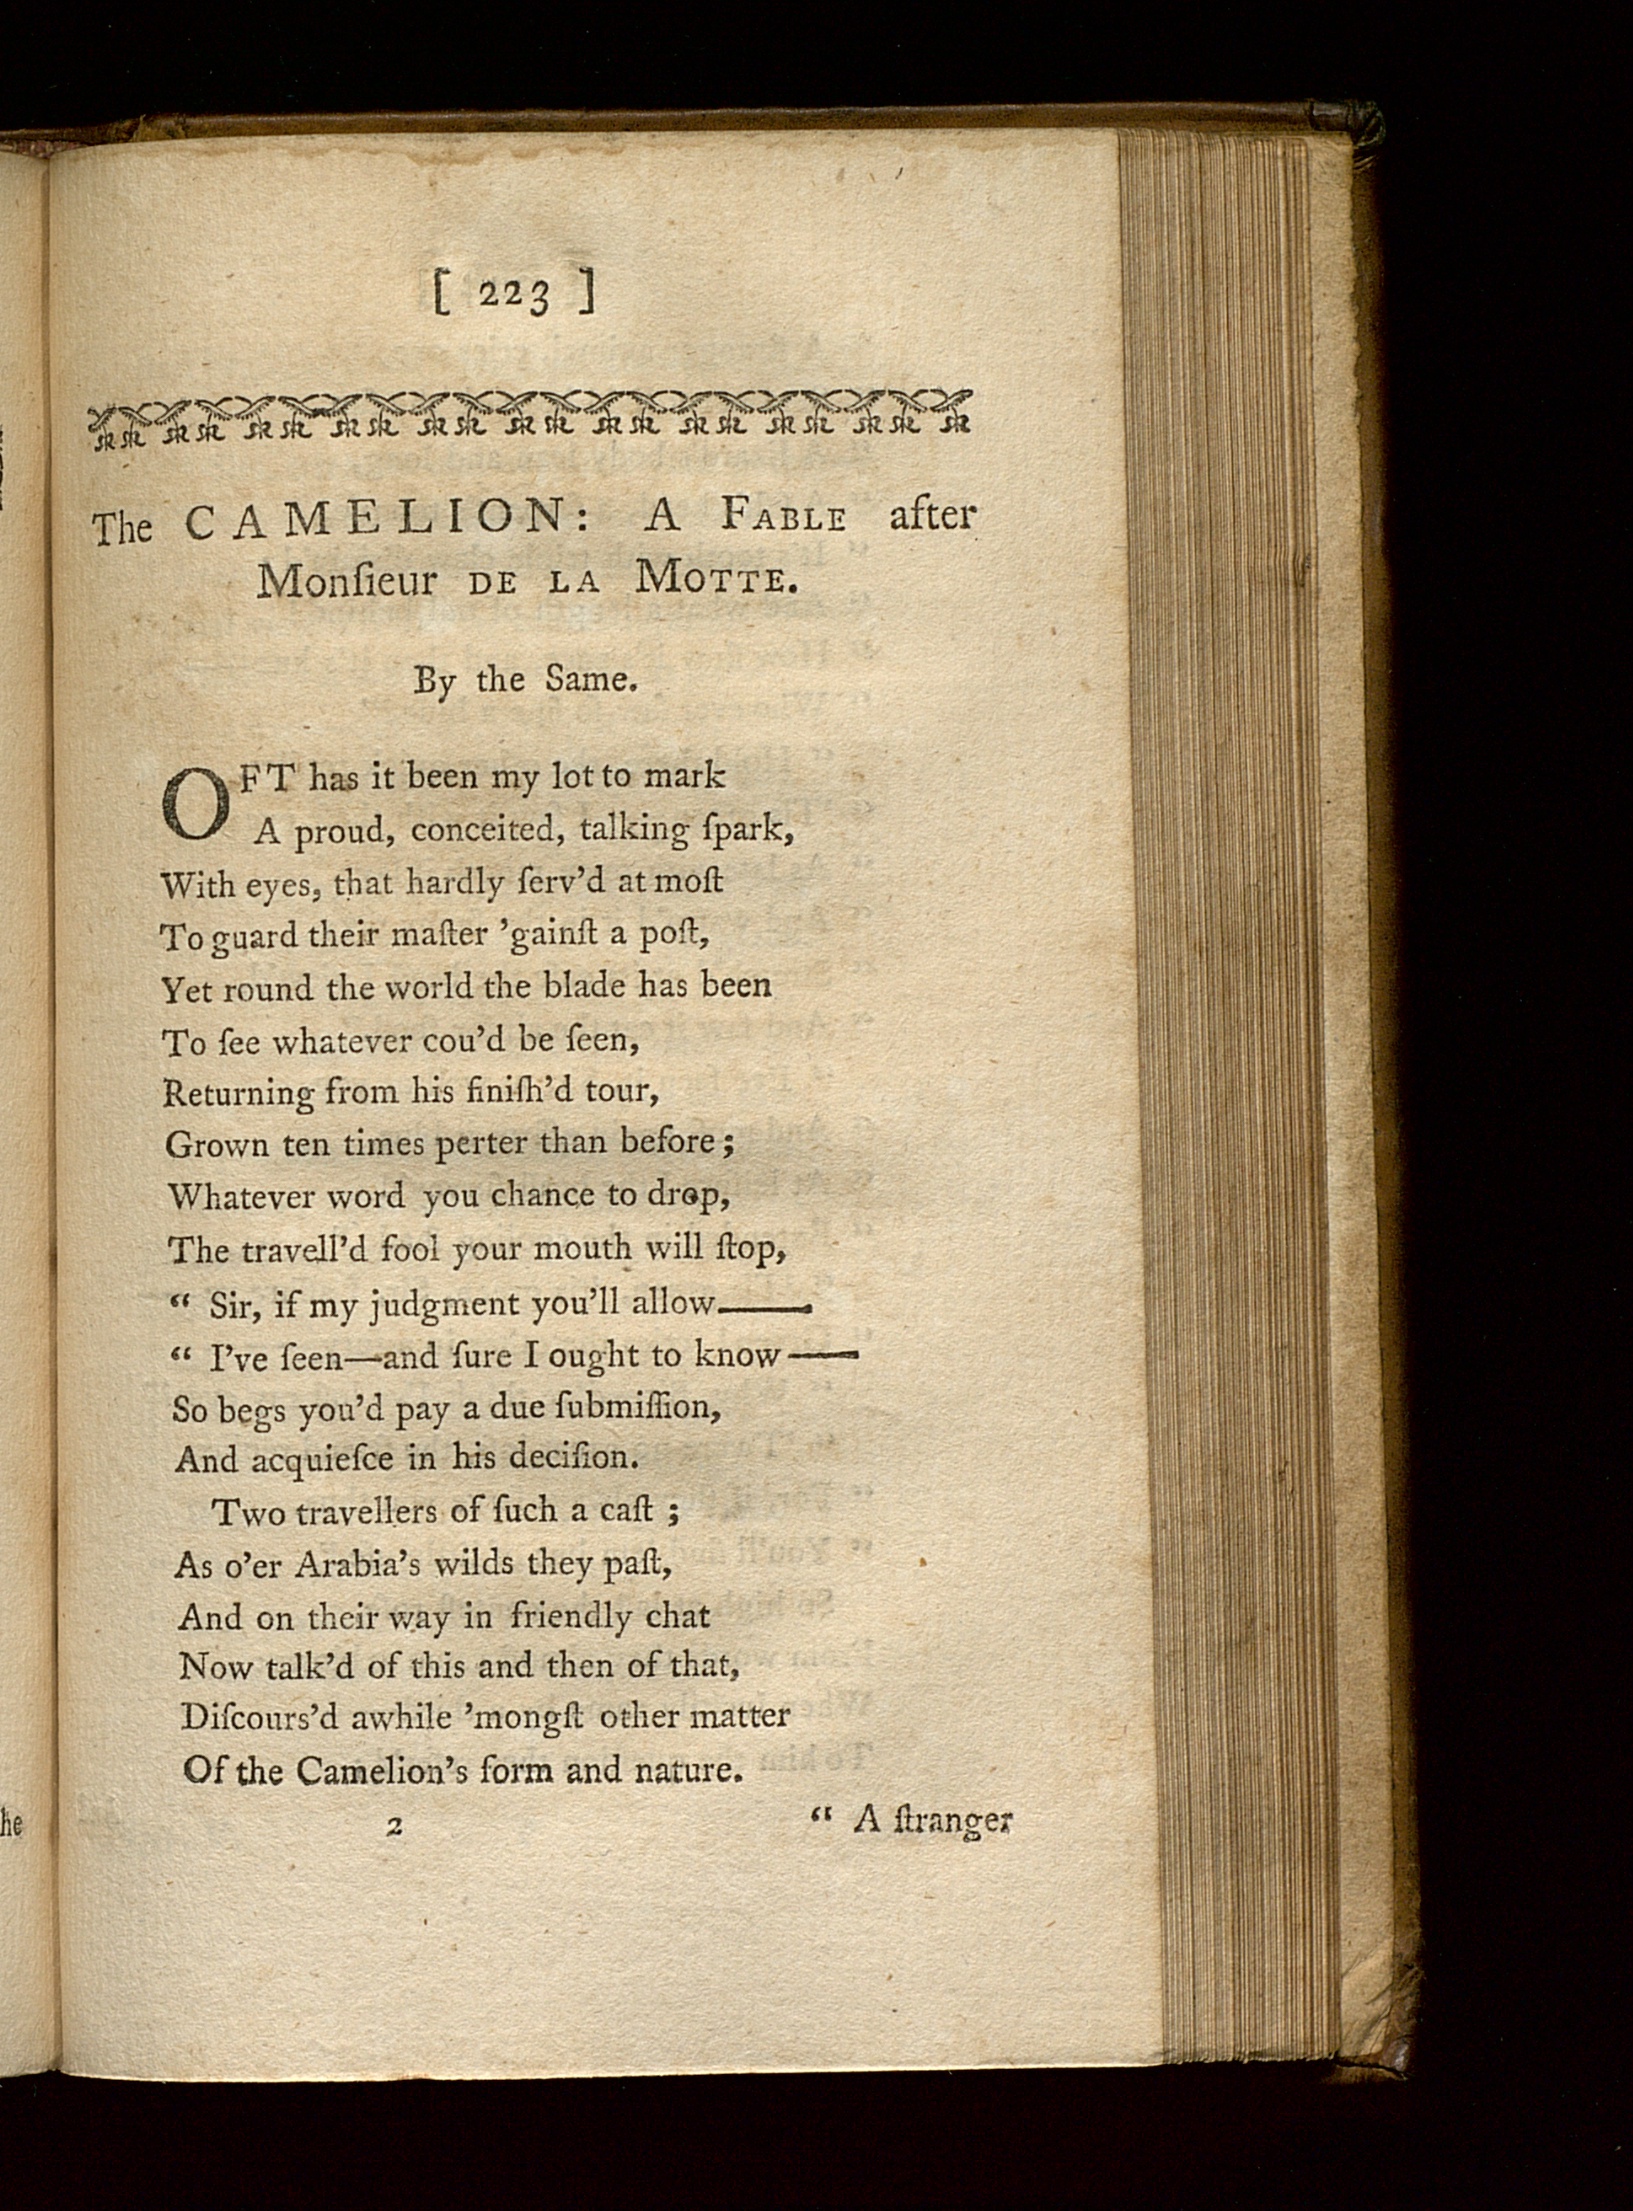 [ 223 ]
The CAMELION: A FABLE after
Monſieur DE LA MOTTE.
By the Same.
OFT has it been my lot to mark
A proud, conceited, talking ſpark,
With eyes, that hardly ſerv'd at moſt
To guard their maſter 'gainſt a poſt,
Yet round the world the blade has been
To ſee whatever cou'd be ſeen,
Returning from his finiſh'd tour,
Grown ten times perter than before;
Whatever word you chance to drop,
The travell'd fool your mouth will ſtop,
“ Sir, if my judgment you'll allow——
“ I've ſeen—and ſure I ought to know——
So begs you'd pay a due ſubmiſſion,
And acquieſce in his deciſion.
Two travellers of ſuch a caſt ;
As o'er Arabia's wilds they paſt,
And on their way in friendly chat
Now talk'd of this and then of that,
Diſcours'd awhile 'mongſt other matter
Of the Camelion's form and nature.
he
2 “ A ſtranger